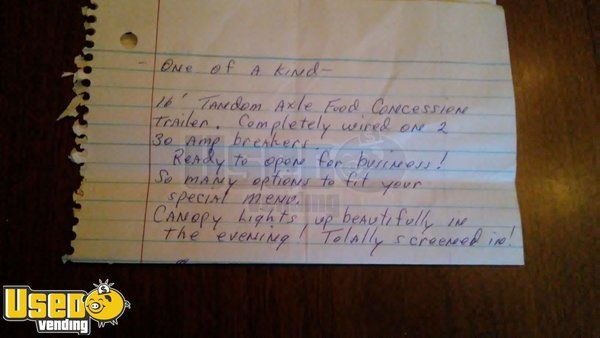 - One of a kind -
16' Tandom Axle Food Concession
trailer. Completely wired one 2
30 amp breakers.
Ready to open for business!
So many options to fit your
special menu.
Canopy Lights up beautifully in
the evening! Totally screened in!
USED
vending
USED
vending